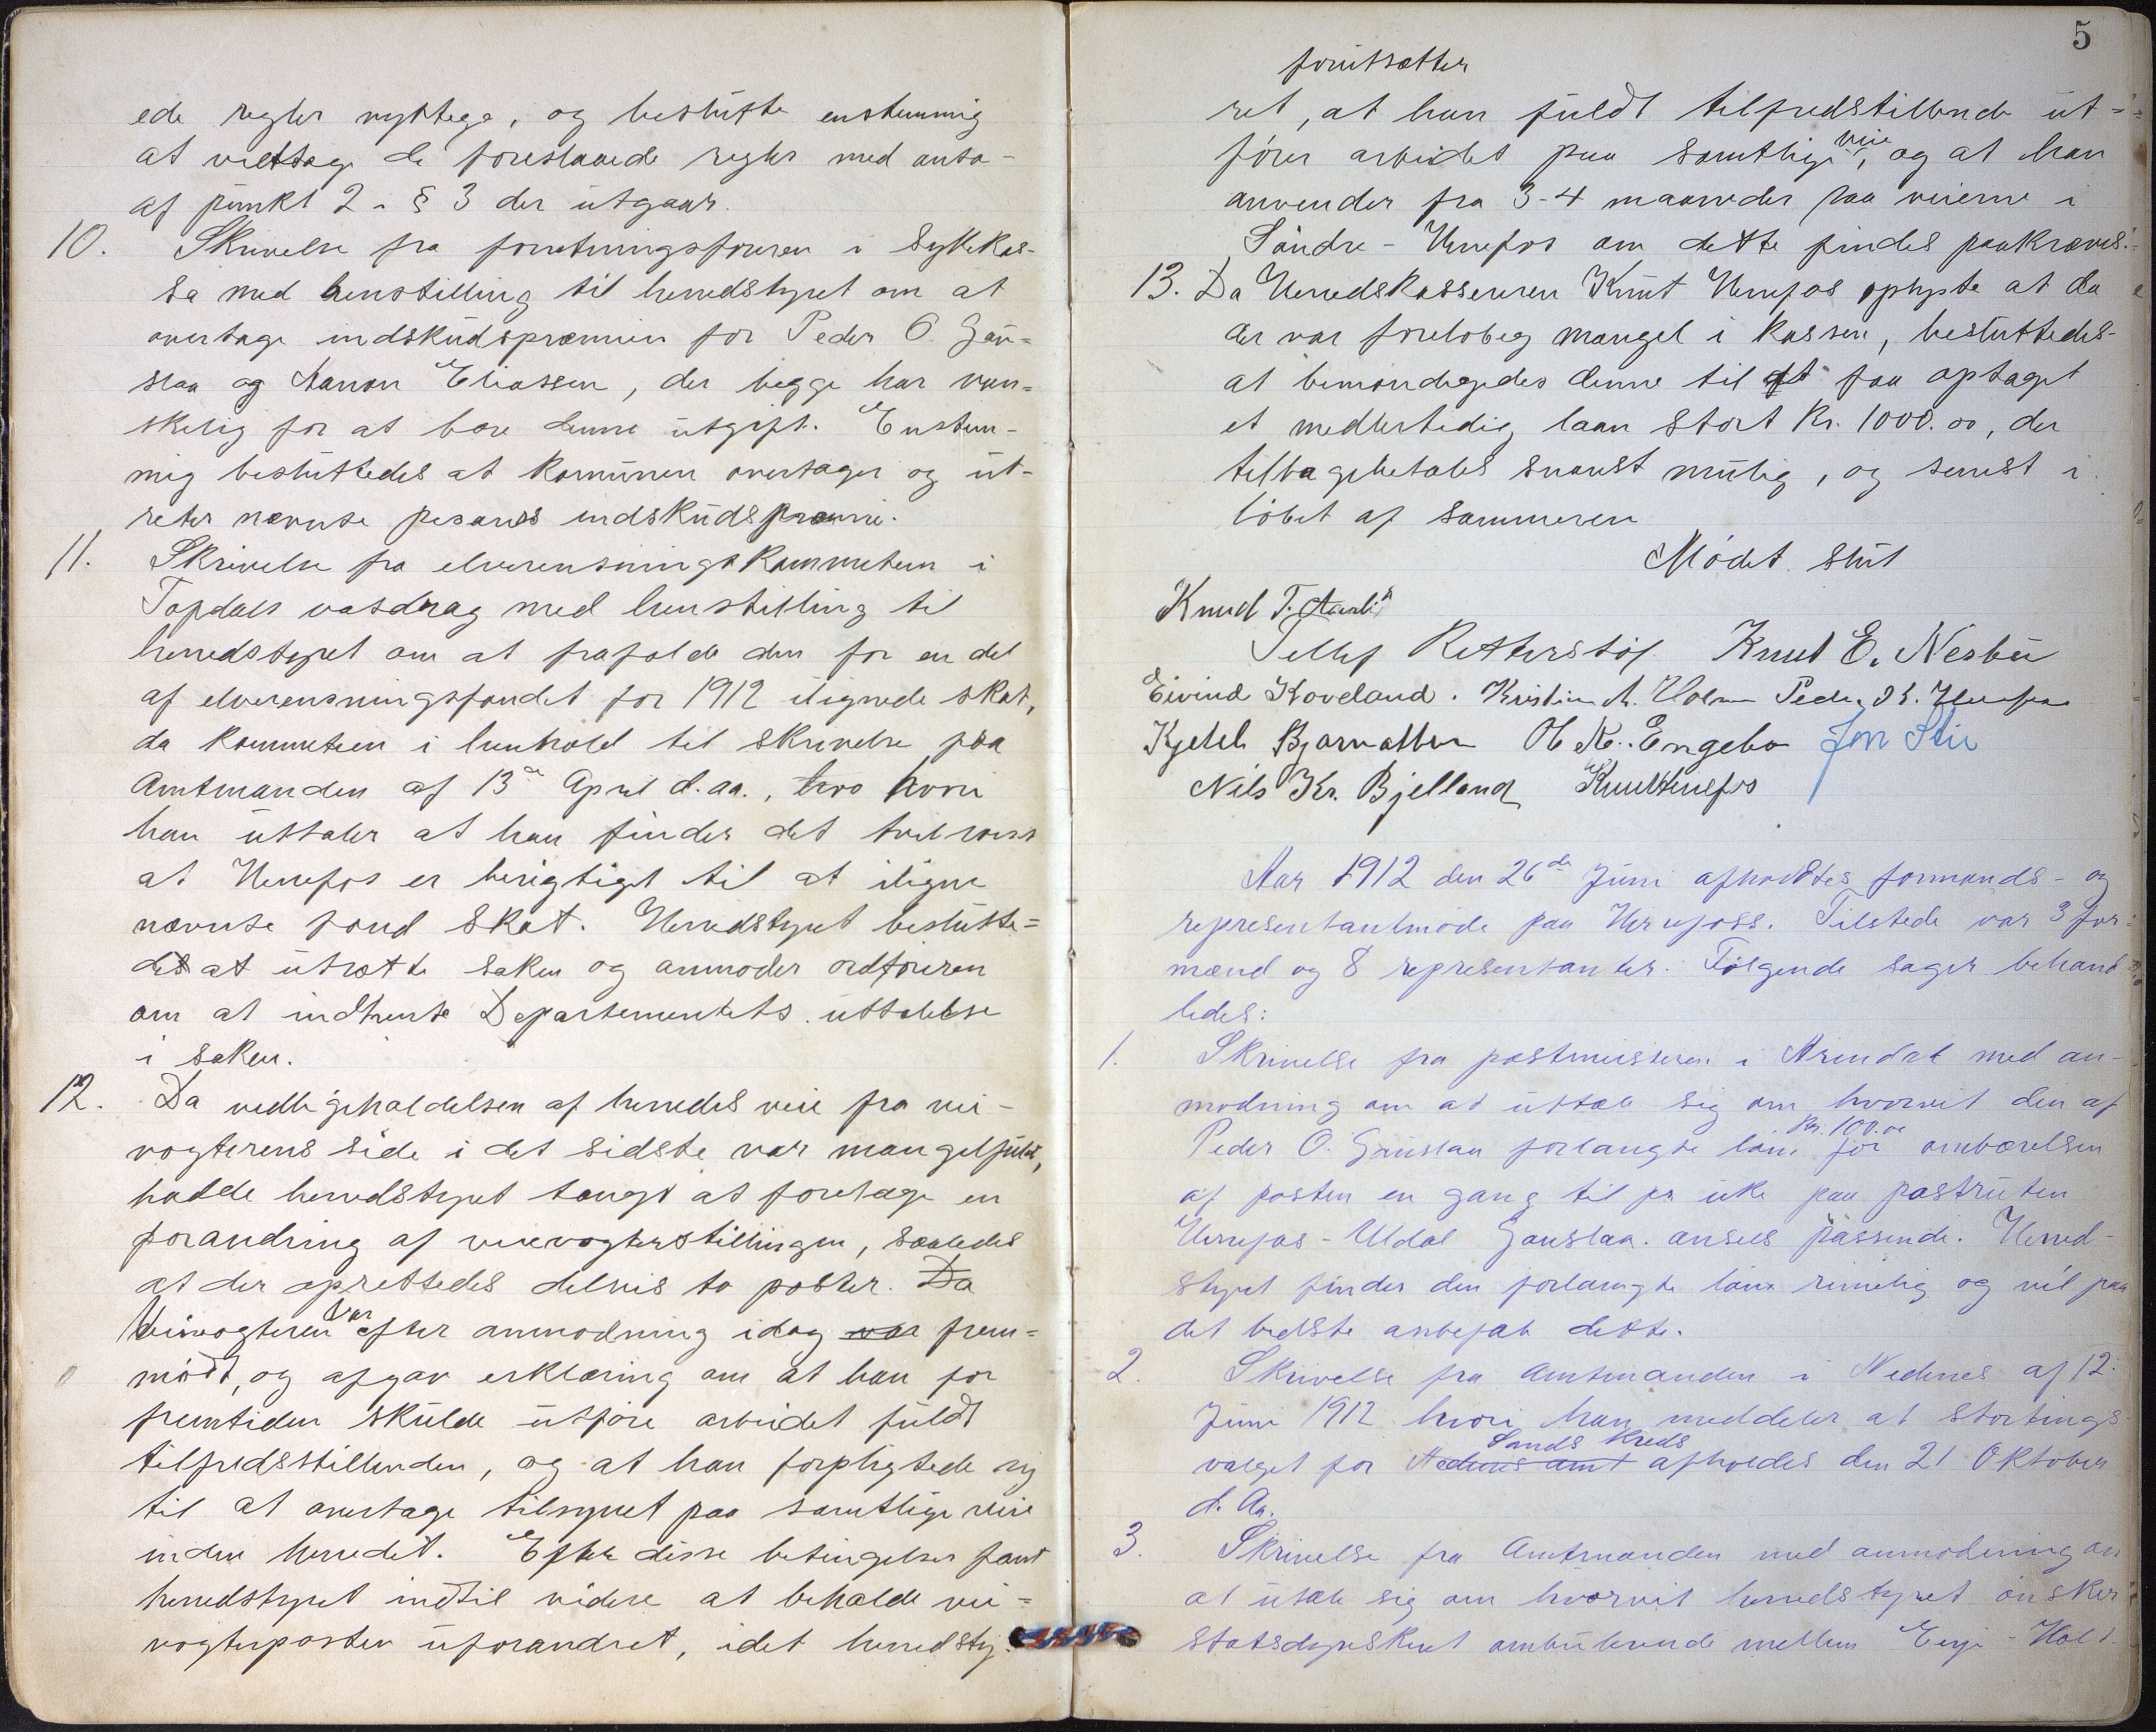 ede regler nyttege, og besluttte enstemmig
at vedtage de foreslaaede regler med unta-
af punkt 2 i § 3 der utgaar.
10. Skrivelse fra forretningsføreren i Sykekas-
sa med henstilling til herredstyret om at
overtage indskudspræmien for Peder O. Gau-
slaa og Aanon Eliassen, der begge har van-
skelig for at bære denne utgift. Enstem-
mig besluttedes at komunen overtager og ut-
reder nævnte persons indskudspræmie.
11. Skrivelse fra elverensningskommiteen i
Topdals vasdrag med henstilling til
herredstyret om at frafalde den for en del
af elverensningsfondet for 1912 ilignede skat,
da kommiteen i henhold til skrivelse fra
Amtmanden af 13de April d.aa., hvo hvori
han uttaler at han finder det tvilsomt
at Herefos er berigtiget til at iligne
nævnte fond skat. Herredstyret beslutte=
des at utsætte saken og anmoder ordføreren
om at indhente Departementets uttalelse
i saken.
12. Da vedligeholdelsen af herredets veie fra vei-
vogterens side i det sidste var mangelfuld,
hadde herredstyret tængt at foretage en
forandring af veivogterstillingen, saaledes
at der oprettedes delvis to poster. Da
Veivogteren var efter anmodning idag var frem=
mødt, og afgav erklæring om at han for
fremtiden skulde utføre arbeidet fuldt
tilfredsstillenden, og at han forpligtede sig
til at overtage tilsynet paa samtlige veie
inden herredet. Efter disse betingelser fant
herredstyret indtil videre at beholde vei=
vogterposten uforandret, idet herredsty-
5
foruitsætter
ret, at han fuldt tilfredstillende ut=
fører arbeidet paa samtlige veie, og at han
anvender fra 3-4 maaneder paa veierne i
Søndre-Herefos om dette findes paakrævet.
13. Da Herredskassereren Knut Herefos oplyste at da
der var foreløbeg mangel i kassen, besluttedes-
at bemøndigedes denne til at faa optaget
et medlertidig laan stort Kr. 1000.00, der
tilbagebetales snarest mulig, og senest i
løbet af sommeren
Mødet slut
Knud T. Aasli
Tellef Retterstøl Knut E. Nesbu
Eivind Hoveland. Kristian A. Peder
Kjetil Bjorvatten Ol K. Engebo Jon Stie
Nils Kr. Bjelland Knut Herefos
Aar 1912 den 26de Juni afholdtes formands- og
representantmøde paa Herefoss. Tilstede var 3 for-
mænd og 8 representanter. Følgende sager behand
ledes:
1. Skrivelse fra postmesteren i Arendal med an-
modning om at uttale sig om hvorvit den af
Peder O. Gauslaa forlangte løn Kr. 100.00 for ombærelsen
af posten en gang til pr uke paa postruten
Herefos-Uldal Gauslaa. ansees passende. Herred-
styret finder den forlangte løn rimelig og vil paa
det bedste anbefale dette.
2. Skrivelse fra Amtmanden i Nedenes af 12.
Juni 1912 hvori han meddeler at stortings
valget for Nedenes amt Sands Kreds afholdes den 21 Oktober
d. Aa.
3. Skrivelse fra Amtmanden med anmodning om
at utale sig om hvorvit herredstyret ønsker
statsdyrskuet ambulerende mellem Evje-Holt